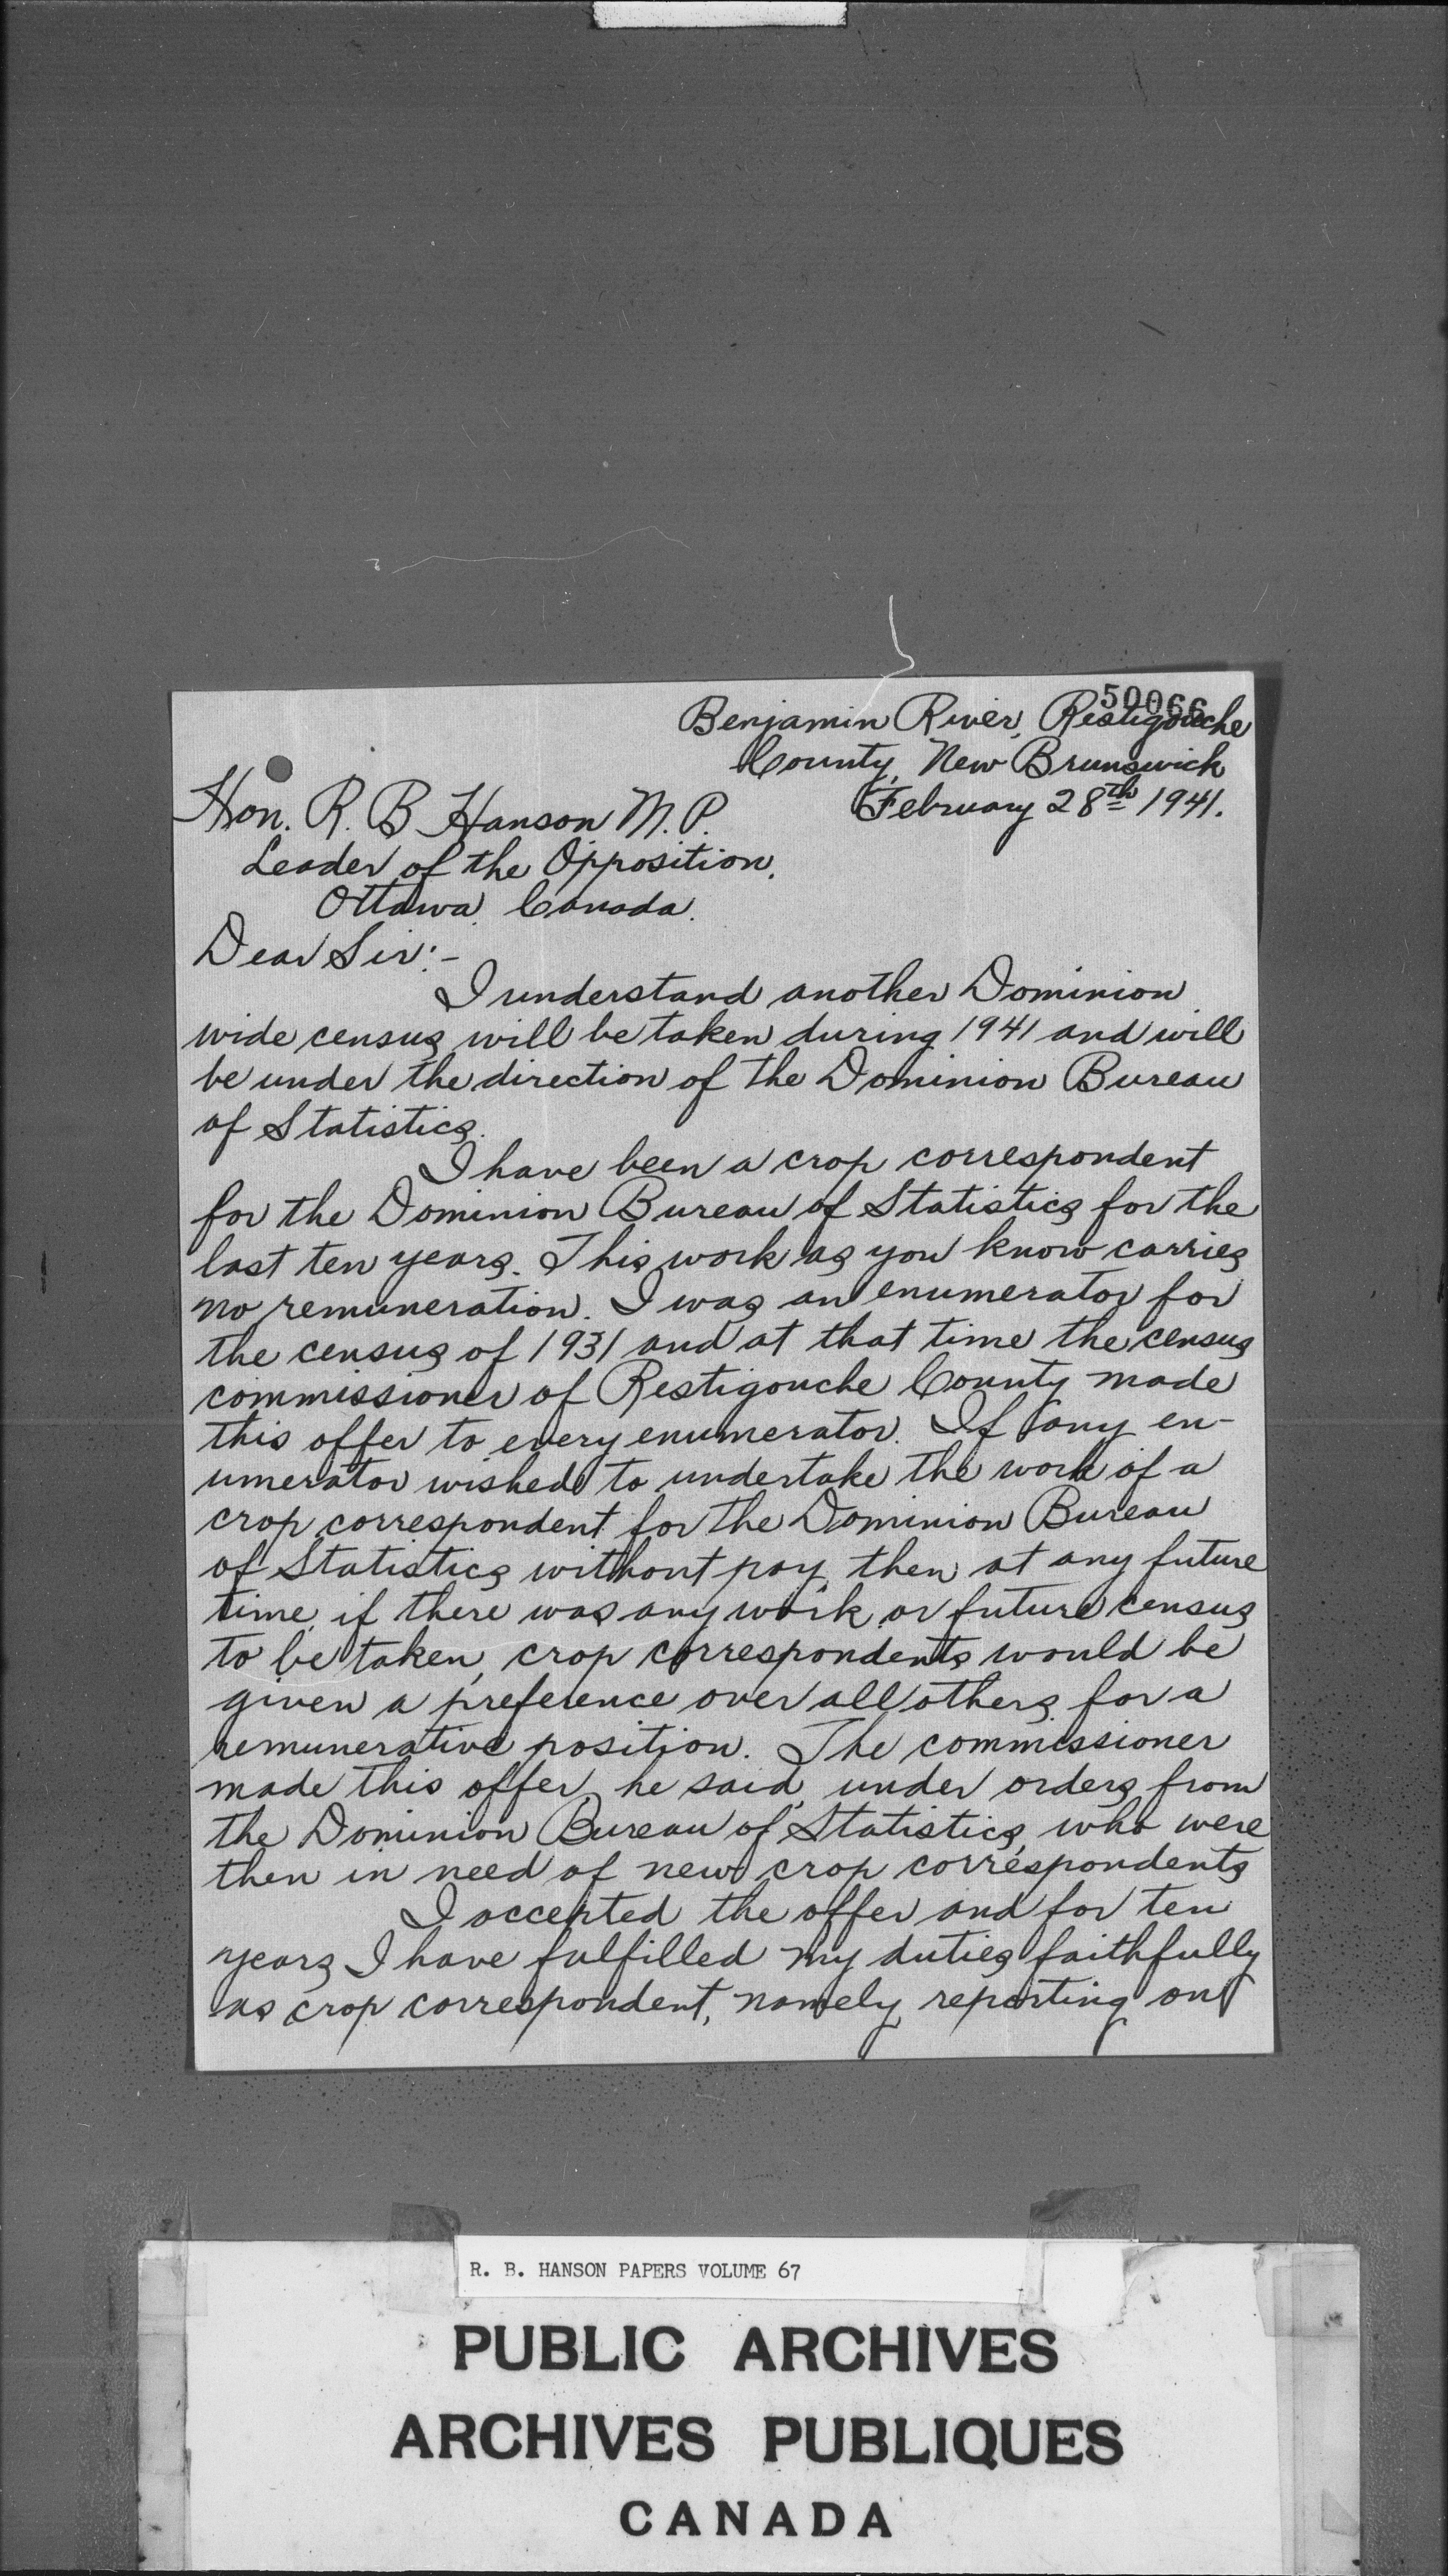 50066
Benjamin River, Restigouche
County, New Brunswick
February 28th 1941.
Hon. R. B Hanson M. P.
Leader of the Opposition,
Ottawa, Canada.
Dear Sir:-
I understand another Dominion
wide census will be taken during 1941 and will
be under the direction of the Dominion Bureau
of Statistics.
I have been a crop correspondent
for the Dominion Bureau of Statistics for the
last ten years. This work as you know carries
no remuneration. I was an enumerator for
the census of 1931 and at that time the census
commissioner of Restigouche County made
this offer to every enumerator. If any en-
umerator wished to undertake the work of a
crop correspondent for the Dominion Bureau
of Statistics without pay, then at any future
time, if there was any work or future census
to be taken, crop correspondents would be
given a preference over all others for a
remunerative position. The commissioner
made this offer, he said, under orders from
the Dominion Bureau of Statistics, who were
then in need of new crop correspondents
I accepted the offer and for ten
years I have fulfilled my duties faithfully
as crop correspondent, namely, reporting on
R. B. HANSON PAPERS VOLUME 67
PUBLIC ARCHIVES
ARCHIVES PUBLIQUES
CANADA